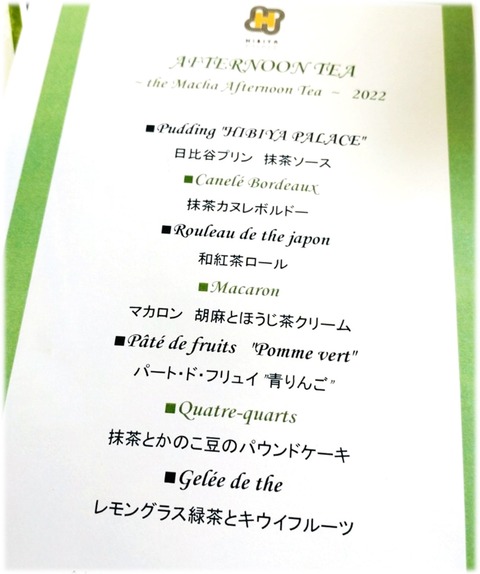 HIBIYA
AFTERNOON TEA
~ the Macha Afternoon Tea ~ 2022
■Pudding "HIBIYA PALACE"
日比谷プリン 抹茶ソース
■Canelé Bordeaux
抹茶カヌレボルドー
■Rouleau de the japon
和紅茶ロール
■Macaron
マカロン 胡麻とほうじ茶クリーム
■Pâté de fruits "Pomme vert"
パート・ド・フリュイ "青りんご"
■Quatre-quarts
抹茶とかのこ豆のパウンドケーキ
■Gelée de the
レモングラス緑茶とキウイフルーツ